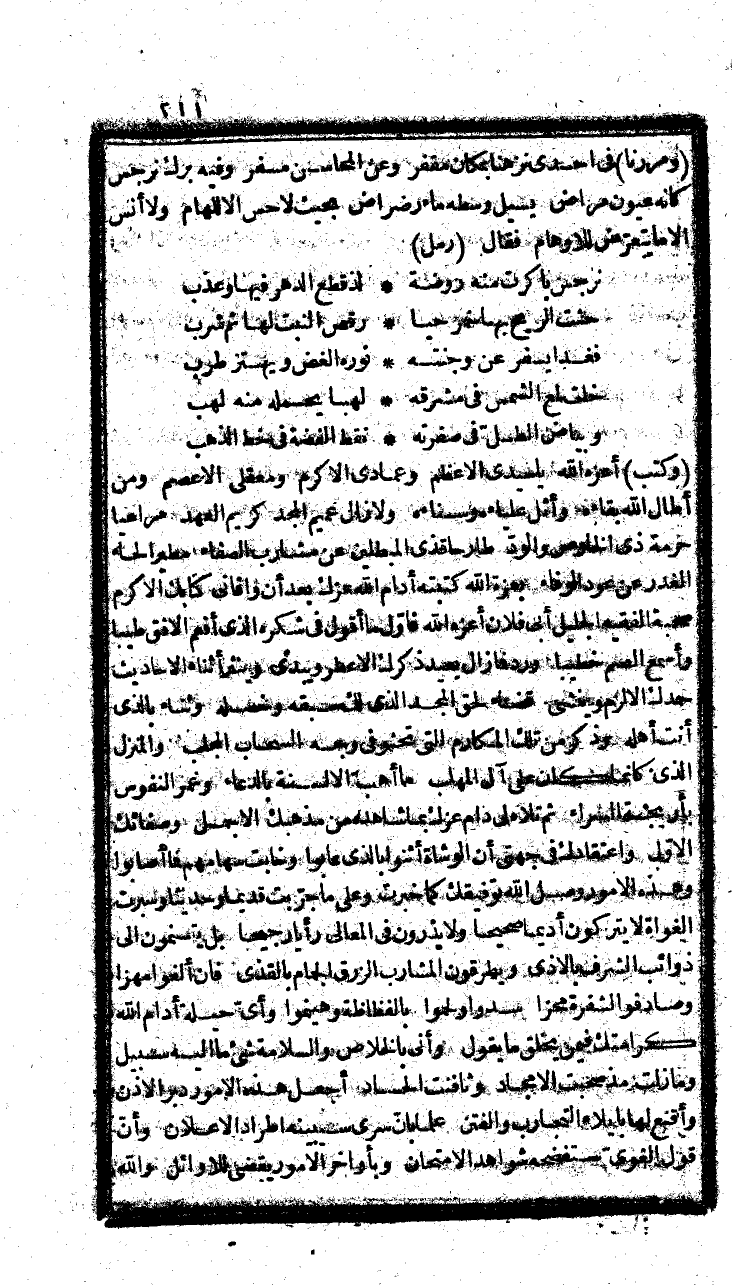 ٢١١
(ومررنا) فى احدى نزهنا بمكان مقفر وعن المحاسن مسفر وفيه برك نرجس
كانه عيون مراض يسيل وسطه ماء رضراض بحيث لا حس الا الهام ولا أنس
الا ما يتعرض للاوهام فقال (رمل)
نرجس باكرت منه روضة * لذ قطع الدهر فيها وعذب
حثت الريح بها خمر حيا * رقص النبت لها ثم شرب
فغدا يسفر عن وجنته * نوره الغض ويهتز طرب
خلت لمع الشمس فى مشرقه * لهبا يحمله منه لهب
وبياض الطل فى صفرته * نقط الفضة فى خط الذهب
(وكتب) أعزه الله ياسيدى الاعظم وعمادى الاكرم ومعقلى الاعصم ومن
أطال الله بقاءه وأثل علياءه وسناءه ولا زال عميم المجد كريم العهد مراعيا
حرمة ذى الخلوص والود طارحا قذى المبطلين عن مشارب الصفاء مطيرا لحاء
الغدر عن عود الوفاء بعزة الله كتبته أدام الله عزك بعد أن وافانى كتابك الاكرم
صحبة الفقيه الجليل أبى فلان أعزه الله فأول ما أقول فى شكره الذى أفعم الافق طيبا
وأسمع الصم خطيبا ورد فما زال يعيد ذكرك الاعطر ويبدى وينشر أثناء الاحاديث
حمدك الالزم ويغشى قضاء لحق المجد الذى لك سبقه وخصله وثناء بالذى
أنت أهله وذكر من تلك المكارم التى تحثو فى وجه السحاب الجلب والمنزل
الذى كانما كان على آل المهلب ما أهب الالسنة بالدعاء وغمر النفوس
بأريحية السراء ثم تلاه لى دام عزك بما شاهده من مذهبك الاجمل وصفائك
الاول واعتقادك فى جهتى أن الوشاة أثنوا بالذى عابوا وخابت سهامهم فما أصابوا
وهذه الامور وصل الله توفيقك كما خبرت وعلى ما جربت قديما وحديثا وسبرت
الغواة لا يتركون أديما صحيحا ولا يذرون فى المعالى رأيا رجيحا بل يتسنمون الى
ذوائب الشرف بالاذى ويطرقون المشارب الزرق الجمام بالقذى فان ألفوا مهزا
وصادفوا الشفرة محزا سدوا ولحوا بالفظاظة وهيفوا وأى حيلة أدام الله
كرامتك فيمن يختلق ما يقول وأنى بالخلاص والسلامة شئ ما اليه سبيل
وما زلت مذ صحبت الامجاد ونافنت الحساد أجعل هذه الامور دبر الاذن
وأقنع لها بابلاء التجارب والفتن علما بان سرى ستبينه اطراد الاعلان وأن
قول الغوى ستفضحه شواهد الامتحان وبأواخر الامور يقضى للاوائل والله